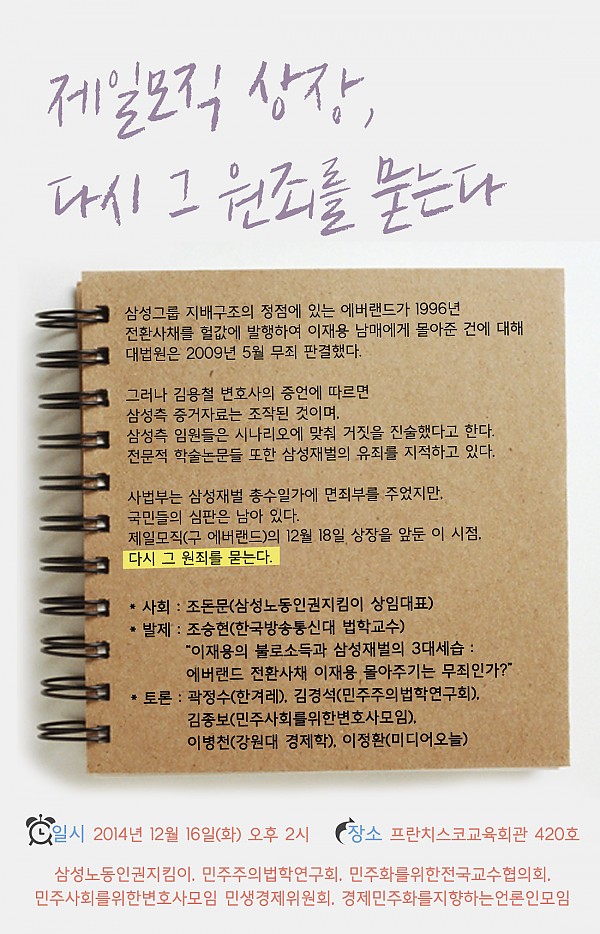 제일모직 상장,
다시 그 원죄를 묻는다
삼성그룹 지배구조의 정점에 있는 에버랜드가 1996년
전환사채를 헐값에 발행하여 이재용 남매에게 몰아준 건에 대해
대법원은 2009년 5월 무죄 판결했다.
그러나 김용철 변호사의 증언에 따르면
삼성측 증거자료는 조작된 것이며,
삼성측 임원들은 시나리오에 맞춰 거짓을 진술했다고 한다.
전문적 학술논문들 또한 삼성재벌의 유죄를 지적하고 있다.
사법부는 삼성재벌 총수일가에 면죄부를 주었지만,
국민들의 심판은 남아 있다.
제일모직(구 에버랜드)의 12월 18일 상장을 앞둔 이 시점,
다시 그 원죄를 묻는다.
* 사회 : 조돈문(삼성노동인권지킴이 상임대표)
* 발제 : 조승현(한국방송통신대 법학교수)
"이재용의 불로소득과 삼성재벌의 3대세습 :
에버랜드 전환사채 이재용 몰아주기는 무죄인가?"
* 토론 : 곽정수(한겨레), 김경석(민주주의법학연구회),
김종보(민주사회를위한변호사모임),
이병천(강원대 경제학), 이정환(미디어오늘)
일시 2014년 12월 16일(화) 오후 2시 장소 프란치스코교육회관 420호
삼성노동인권지킴이, 민주주의법학연구회, 민주화를위한전국교수협의회,
민주사회를위한변호사모임 민생경제위원회, 경제민주화를지향하는언론인모임